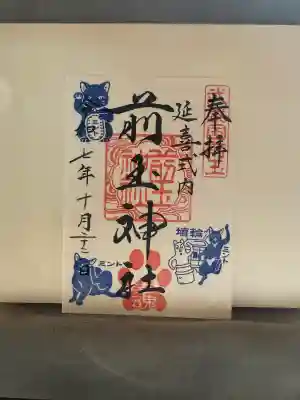 奉拝
延喜式内
前玉神社
七年十月二十二日
埴輪
ミント
ミント
魂